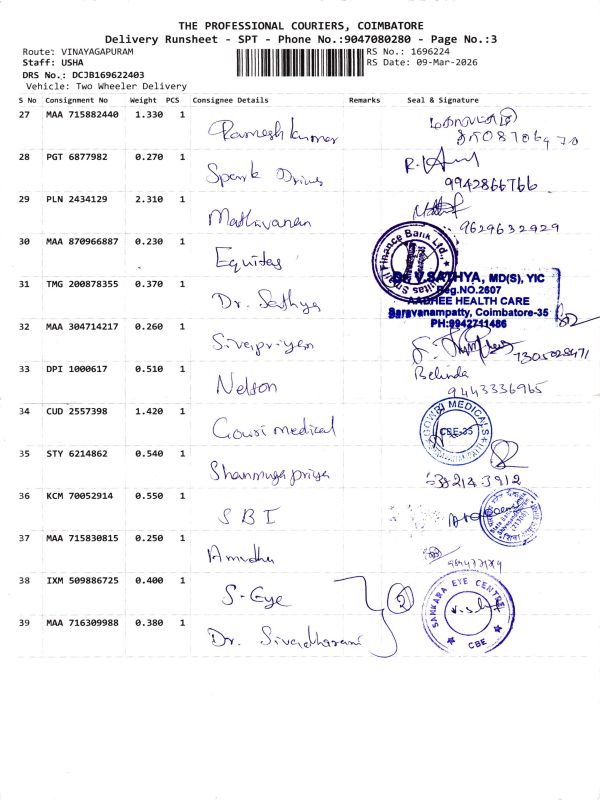 THE PROFESSIONAL COURIERS, COIMBATORE
Delivery Runsheet - SPT - Phone No.:9047080280 - Page No.:3
Route: VINAYAGAPURAM
RS No.: 1696224
Staff: USHA
RS Date: 09-Mar-2026
DRS No.: DCJB169622403
Vehicle: Two Wheeler Delivery
S No Consignment No Weight PCS Consignee Details Remarks Seal & Signature
27 MAA 715882440 1.330 1 Ramesh kumar
28 PGT 6877982 0.270 1 Spark Drives
9942866766
29 PLN 2434129 2.310 1 Mathavanan
9629632929
30 MAA 870966887 0.230 1 Equitas
Equitas Small Finance Bank Ltd.,
31 TMG 200878355 0.370 1 Dr. Sathya
Dr. V.SATHYA, MD(S), YIC
Reg.NO.2607
AADHEE HEALTH CARE
Saravanampatty, Coimbatore-35
PH:9942711486
32 MAA 304714217 0.260 1 Sivapriyan
33 DPI 1000617 0.510 1 Nelson
Belinda
9443336965
34 CUD 2557398 1.420 1 Gowri medical
GOWRI MEDICALS
CBE-35
35 STY 6214862 0.540 1 Shanmuga priya
36 KCM 70052914 0.550 1 SBI
37 MAA 715830815 0.250 1 Amudha
38 IXM 509886725 0.400 1 S-Eye
2
SANKARA EYE CENTRE
CBE
39 MAA 716309988 0.380 1 Dr. Sivadharani